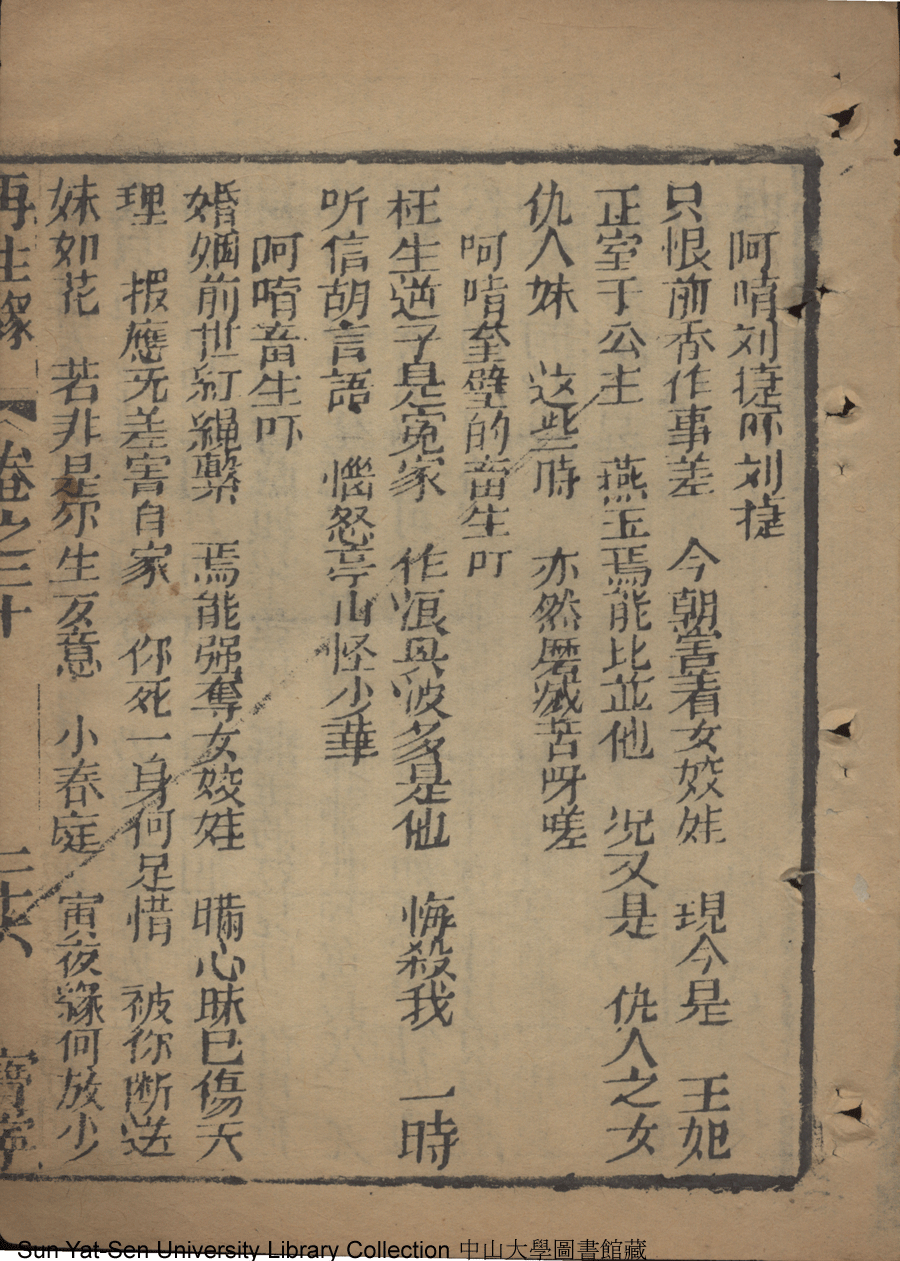 阿唷刘捷吓刘捷
只恨前香作事差　今朝害着女姣娃　現今是　王妃
正室于公主　燕玉焉能比並他　况又是　仇人之女
仇人妹　这些時　亦然磨滅苦呀嗟
呵唷奎壁的畜生吖
枉生逆子是冤家　作浪興波多是他　悔殺我　一時
听信胡言語　惱怒亭山怪少華
阿唷畜生吓
婚姻前世紅繩繫　焉能强奪女姣娃　瞞心昧已傷天
理　报應无差害自家　你死一身何足惜　被你断送
妹如花　若非是尔生歹意　小春庭　寅夜緣何放少
再生緣　卷之三十　二十六　寶寧
Sun Yat-Sen University Library Collection 中山大學圖書館藏